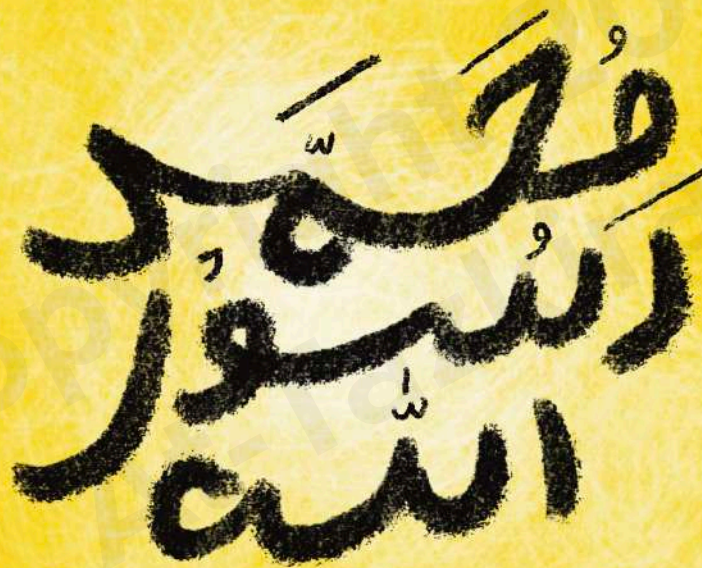 مُحَمَّد
رَسُوْل
اللّٰه